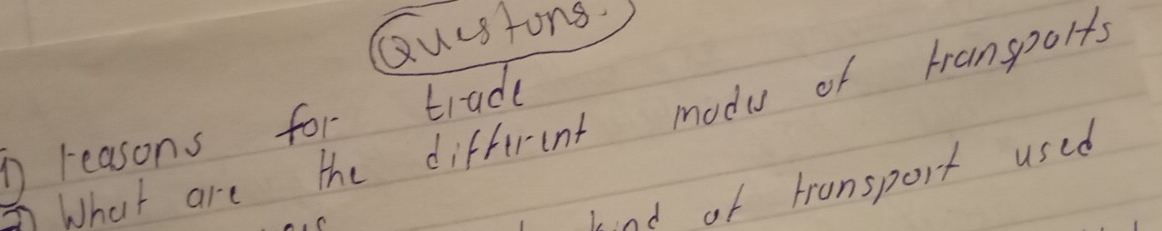 Questons.
① reasons for trade
② What are the different modes of transports
kind of transport used